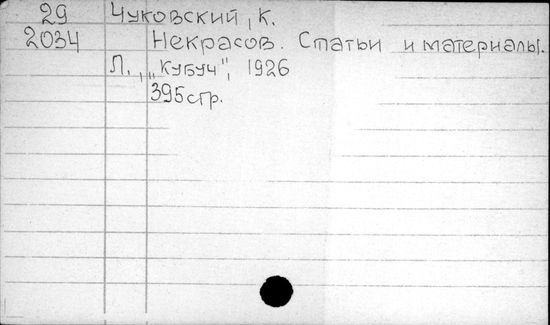 29 Чуковский, К.
2034 Некрасов. Статьи и материалы.
Л., „Кубуч", 1926
395 стр.